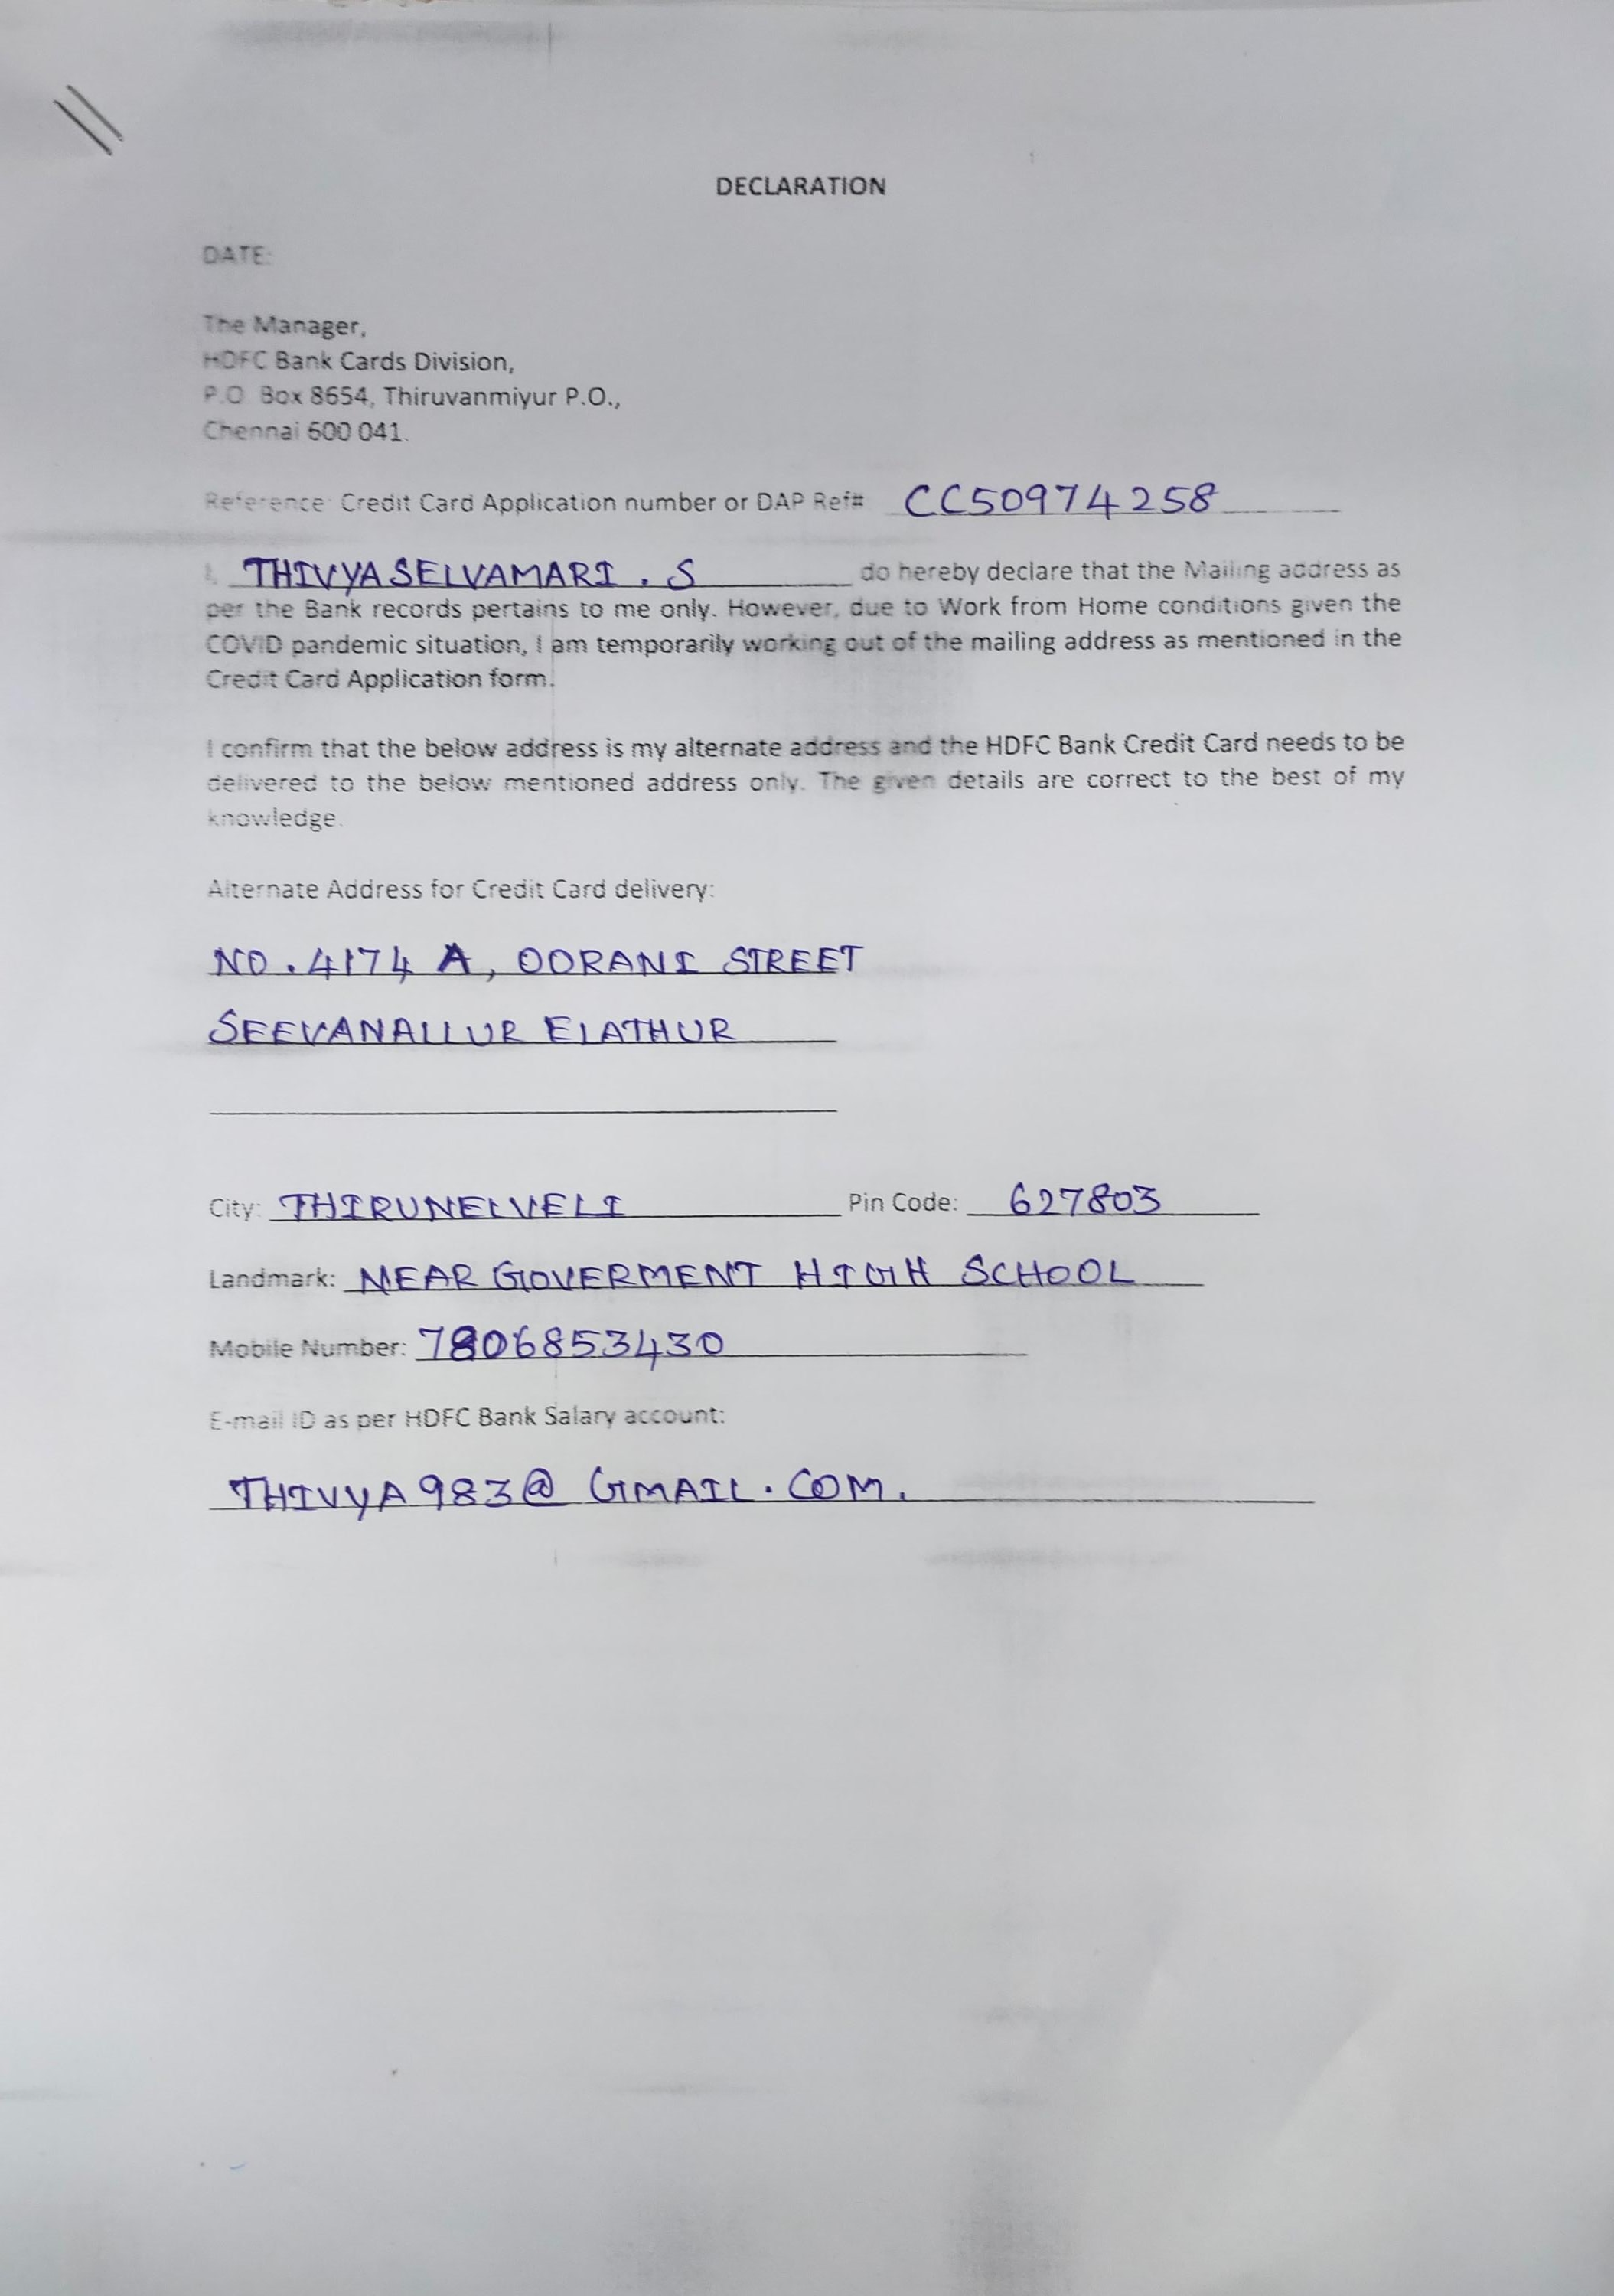 DECLARATION
DATE:
The Manager,
HDFC Bank Cards Division,
P.O. Box 8654, Thiruvanmiyur P.O.,
Chennai 600 041.
Reference: Credit Card Application number or DAP Ref# CC50974258
I, THIVYASELVAMARI . S do hereby declare that the Mailing address as
per the Bank records pertains to me only. However, due to Work from Home conditions given the
COVID pandemic situation, I am temporarily working out of the mailing address as mentioned in the
Credit Card Application form.
I confirm that the below address is my alternate address and the HDFC Bank Credit Card needs to be
delivered to the below mentioned address only. The given details are correct to the best of my
knowledge.
Alternate Address for Credit Card delivery:
NO . 4174 A, OORANI STREET
SEEVANALLUR ELATHUR
City: THIRUNELVELI Pin Code: 627803
Landmark: NEAR GOVERMENT HIGH SCHOOL
Mobile Number: 7806853430
E-mail ID as per HDFC Bank Salary account:
THIVYA983@ GMAIL . COM.